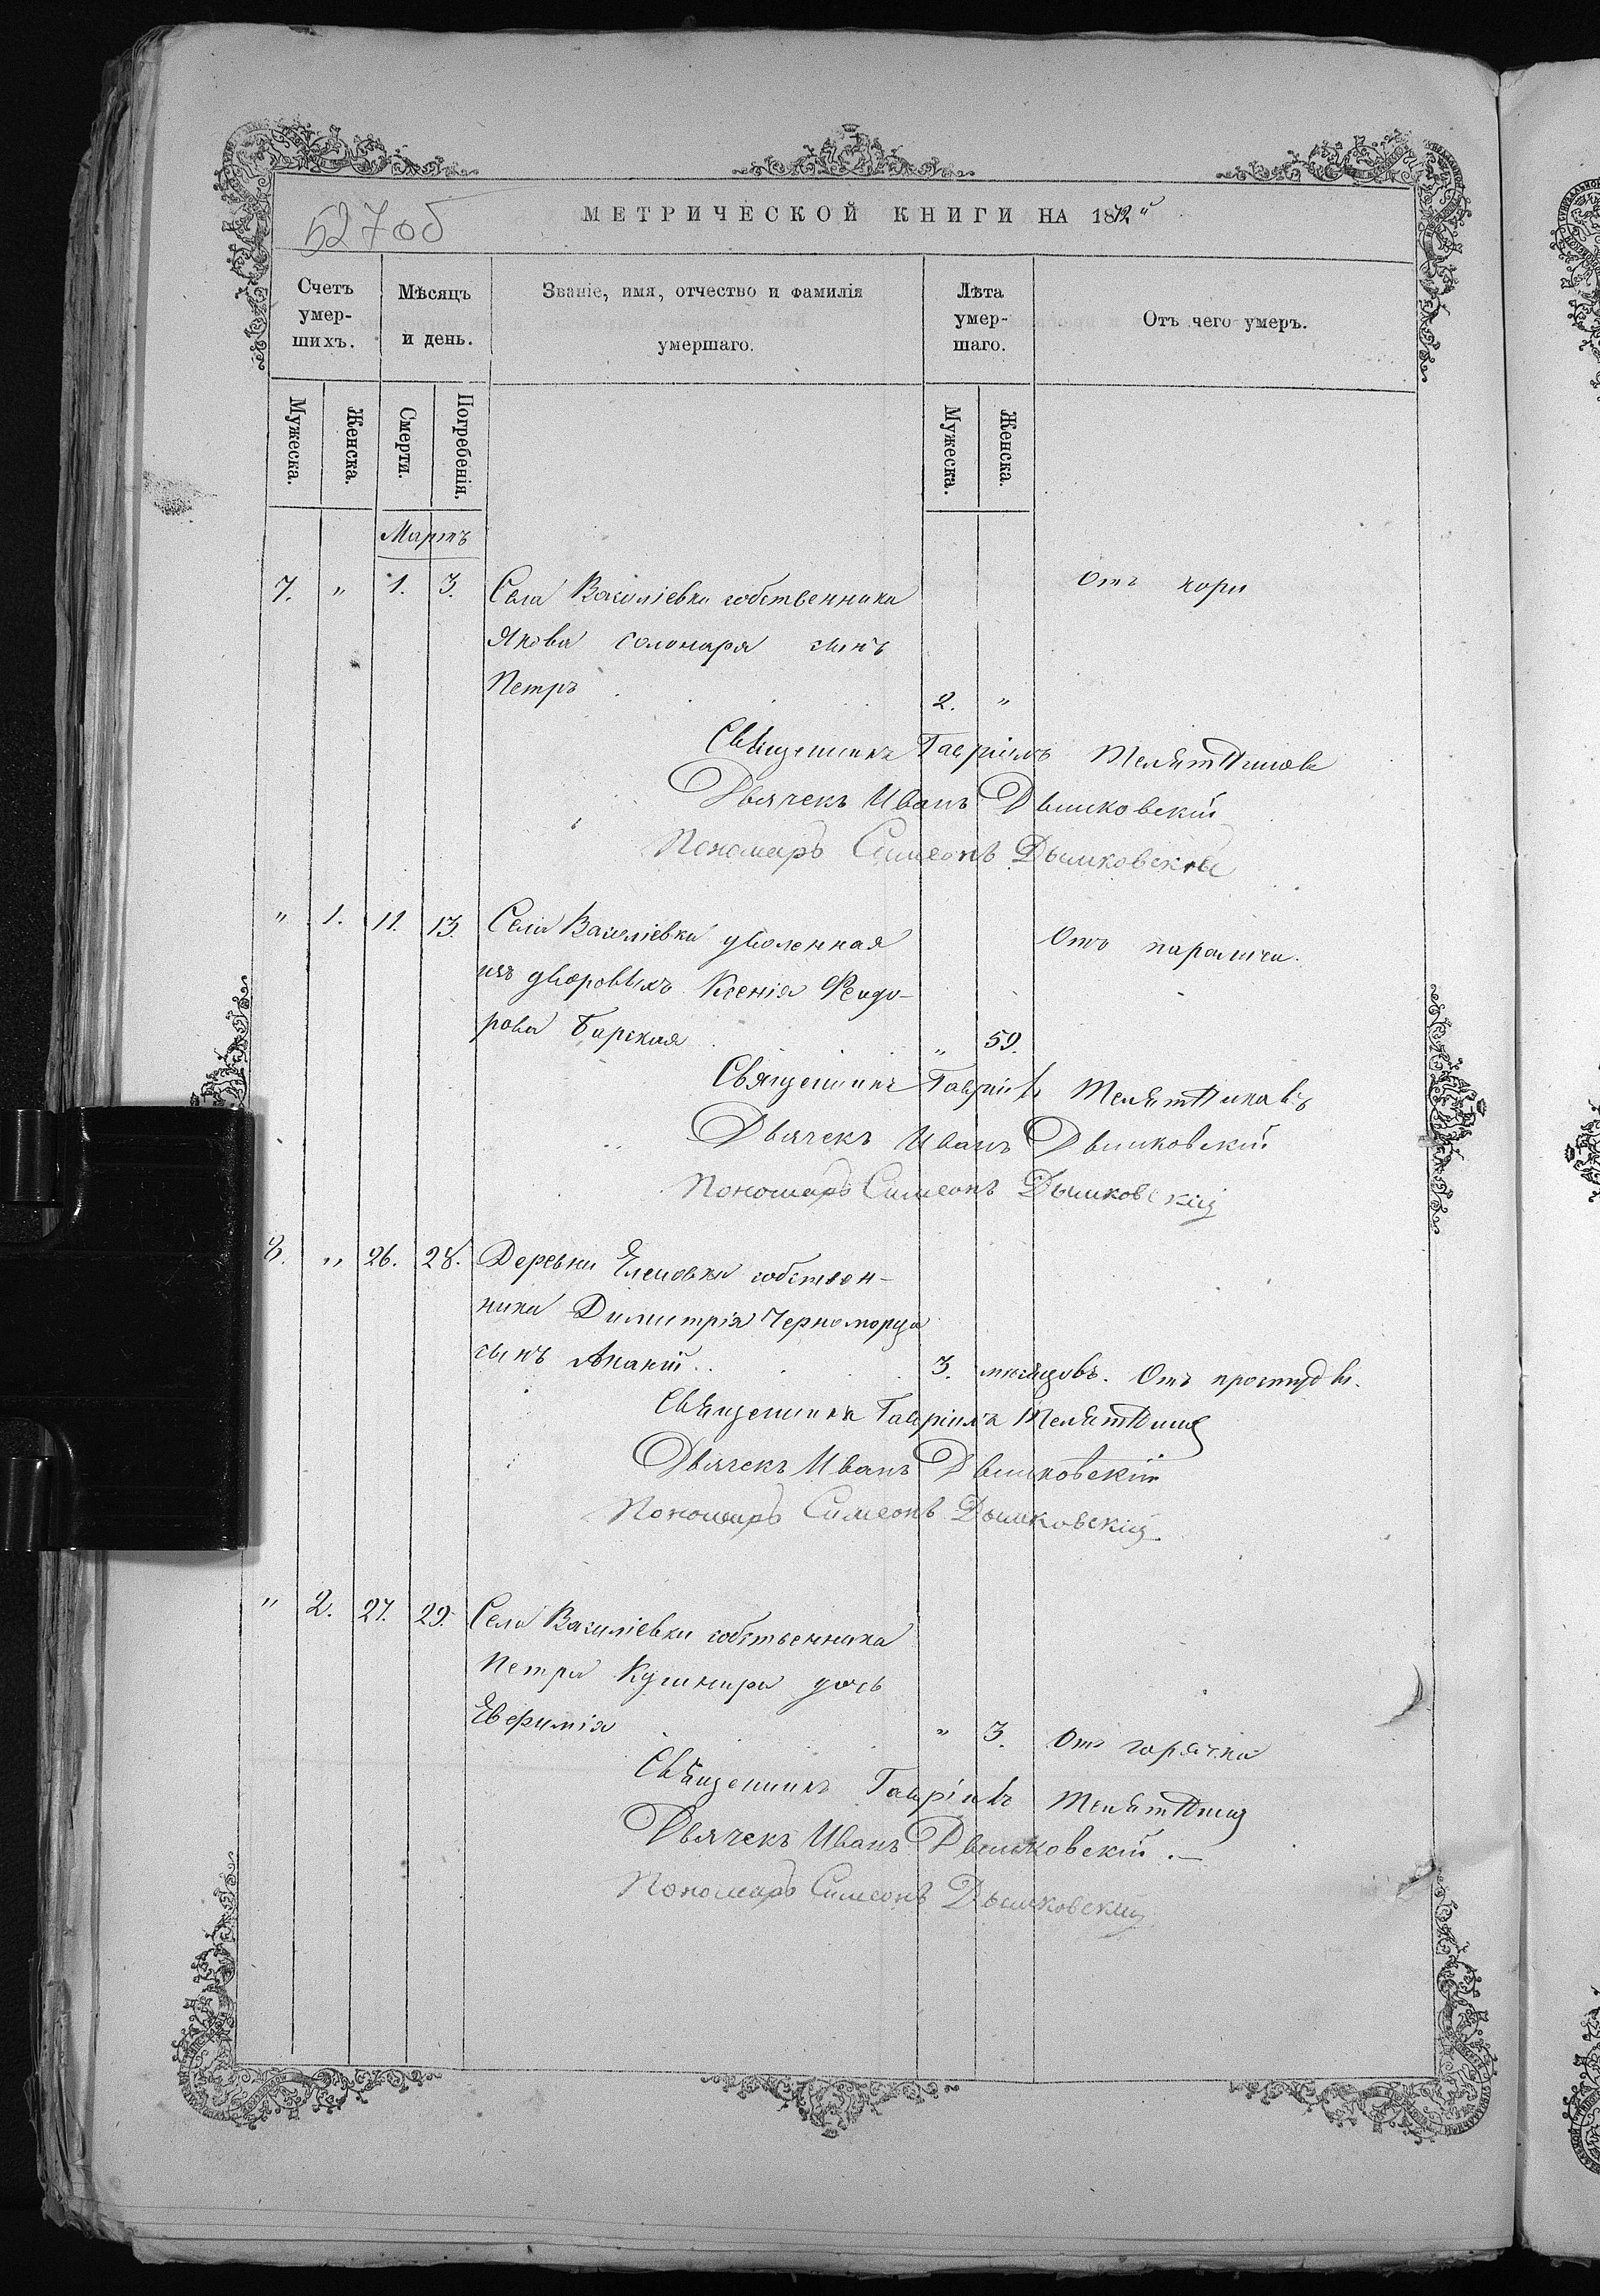 527об
МЕТРИЧЕСКОЙ КНИГИ НА 1872й
Счетъ умер-
шихъ.
Мѣсяцъ
и день.
Званіе, имя, отчество и фамилія
умершаго.
Лѣта
умер-
шаго.
Отъ чего умеръ.
Мужеска.
Женска.
Смерти.
Погребенія.
Мужеска.
Женска.
Мартъ
7. " 1. 3. Села Василіевки собственника Отъ кори
Якова Солонаря сынъ
Петръ 2. "
Священникъ Гавріилъ
Дьячекъ Иванъ Дышковскій
Пономарь Симеонъ Дышковскій
" 1. 11. 13. Села Василіевки уволенная Отъ паралича.
изъ дворовыхъ Ксенія Фeидо-
рова Барская " 59.
Священникъ Гавріилъ
Дьячекъ Иванъ Дышковскій
Пономарь Симеонъ Дышковскій
8. " 26. 28. Деревни Еленовки собствен-
ника Димитрія Черноморца
сынъ Ананій 3. мѣсяцовъ. Отъ простуды.
Священникъ Гавріилъ
Дьячекъ Иванъ Дышковскій
Пономарь Симеонъ Дышковскій
" 2. 27. 29. Села Василіевки собственника
Петра Кушнира дочь
Евфимія " 3. Отъ горячки
Священникъ Гавріилъ
Дьячекъ Иванъ Дышковскій.
Пономарь Симеонъ Дышковскій